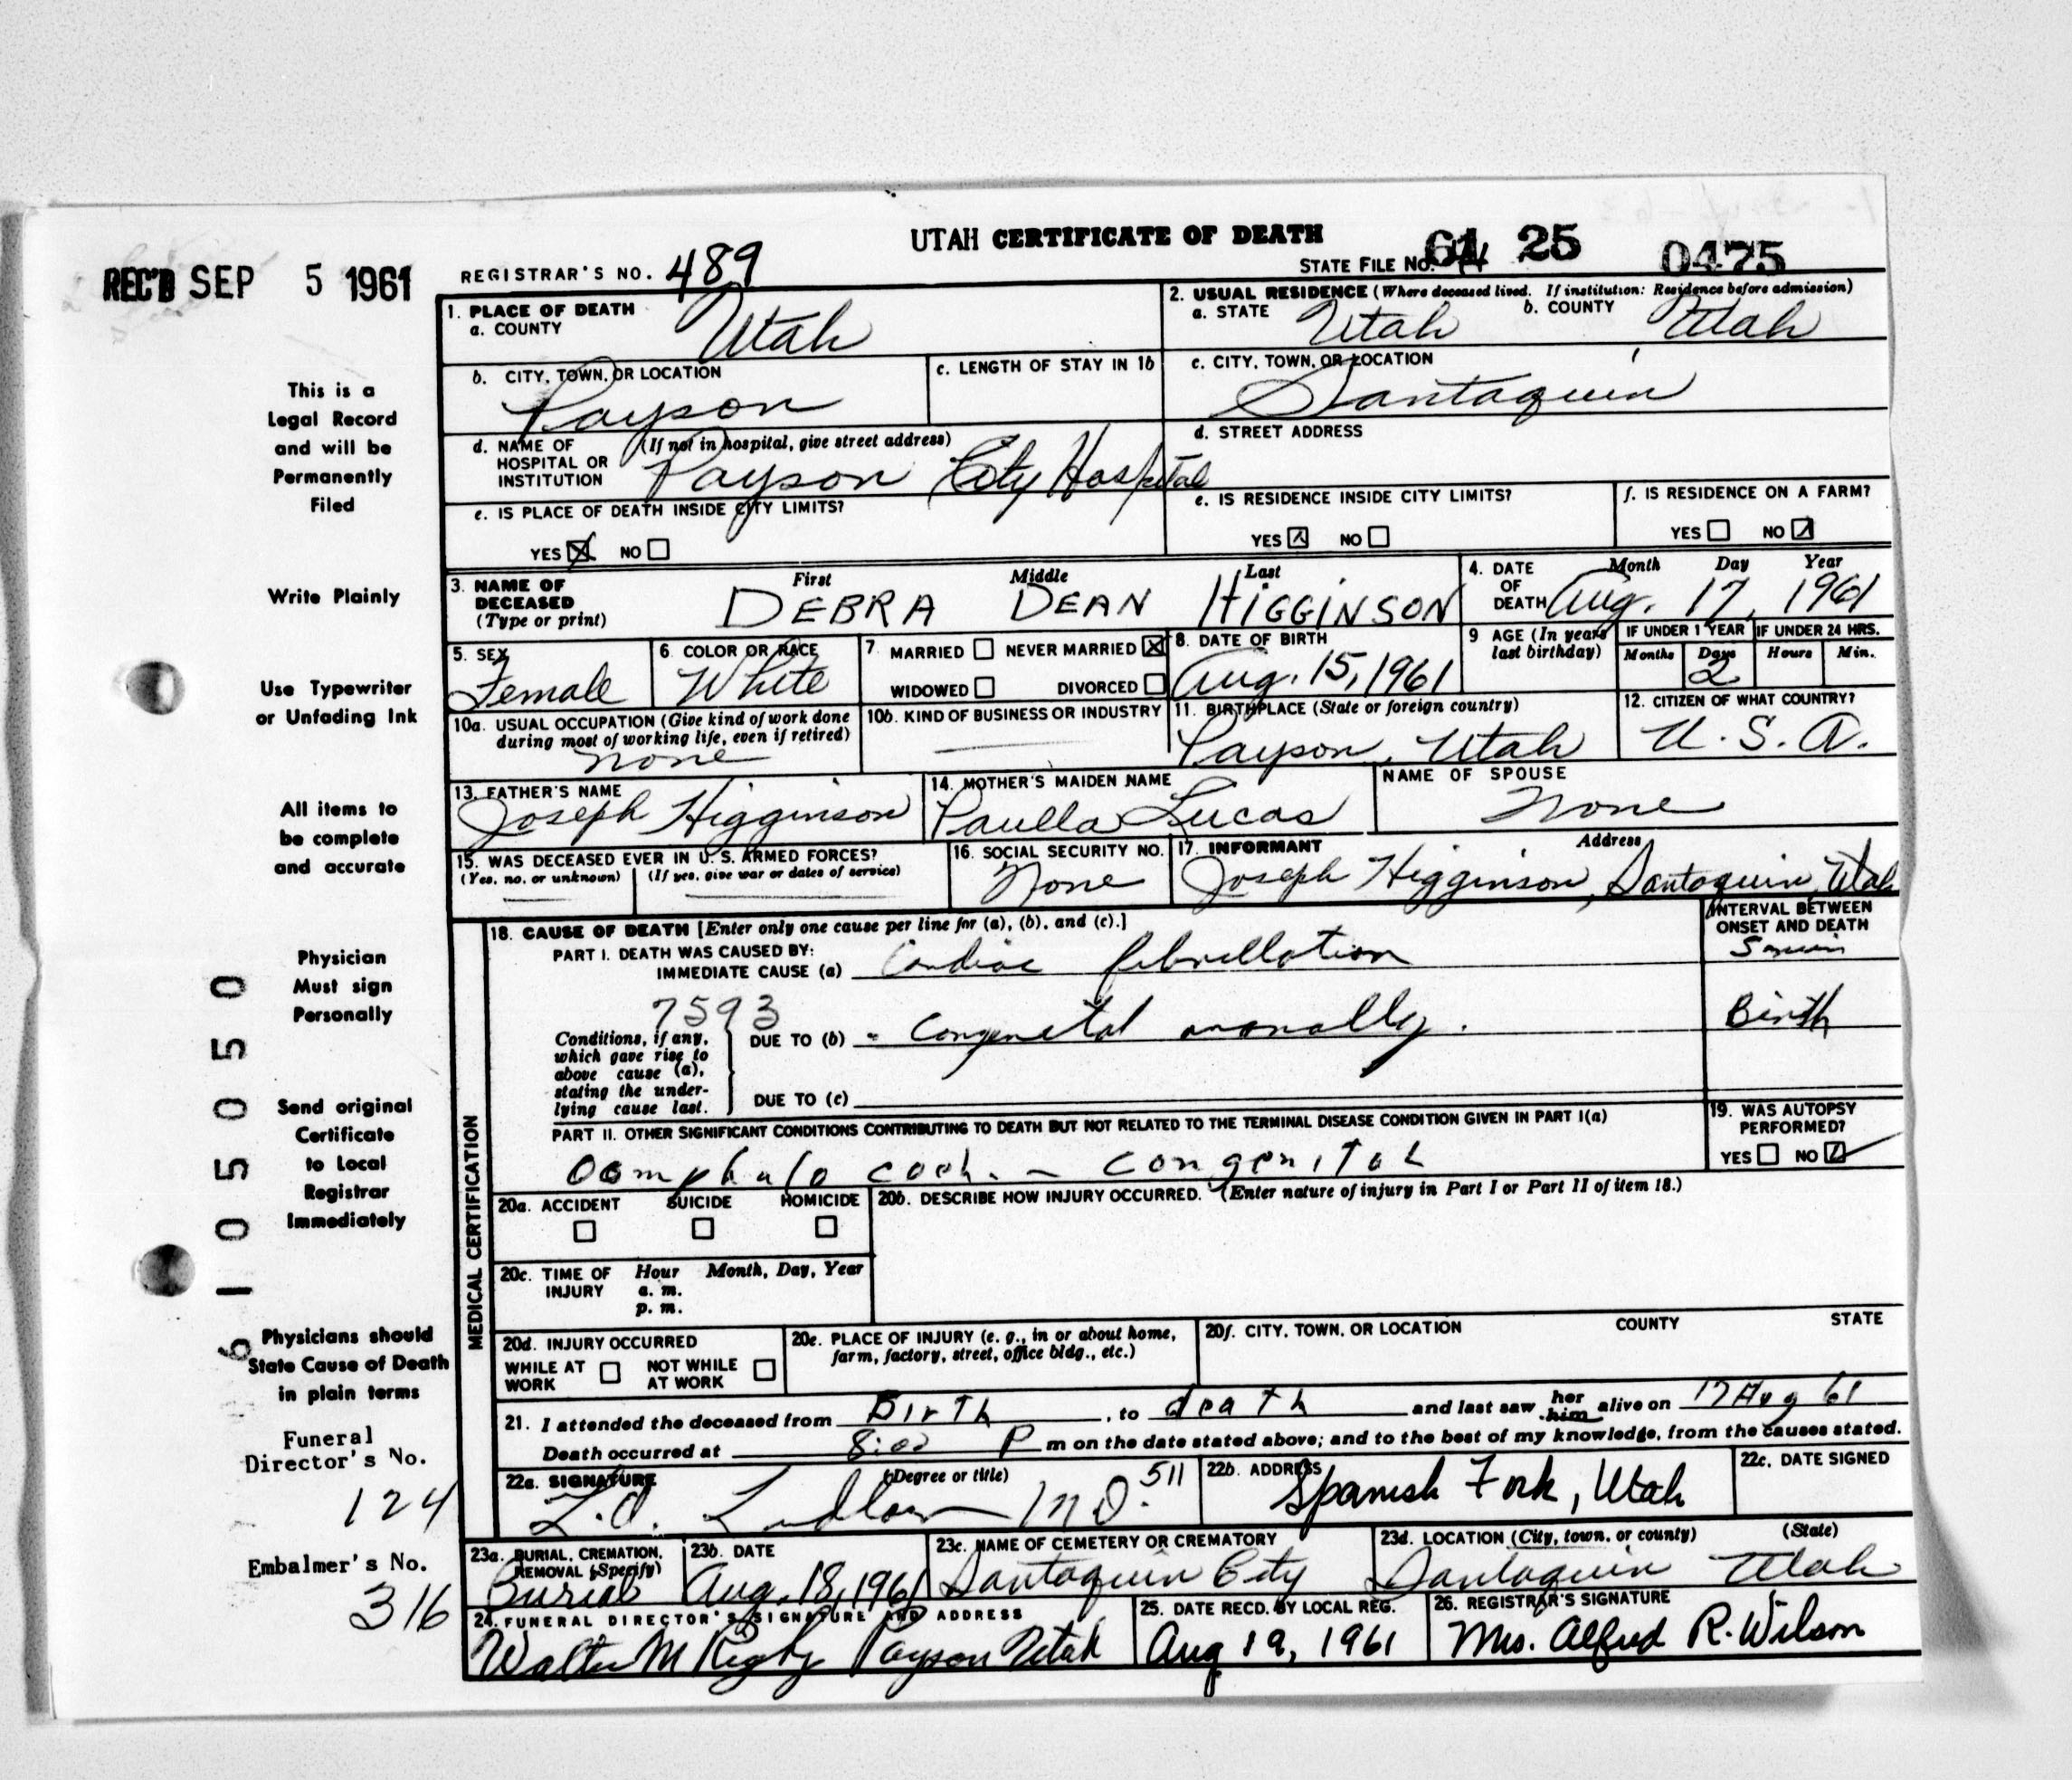 UTAH CERTIFICATE OF DEATH
REC'D SEP 5 1961
REGISTRAR'S NO. 489
STATE FILE NO. 61 25 0475
1. PLACE OF DEATH
a. COUNTY Utah
2. USUAL RESIDENCE (Where deceased lived. If institution: Residence before admission)
a. STATE Utah b. COUNTY Utah
b. CITY, TOWN, OR LOCATION Payson
c. LENGTH OF STAY IN 1b
c. CITY, TOWN, OR LOCATION Santaquin
d. NAME OF HOSPITAL OR INSTITUTION (If not in hospital, give street address) Payson City Hospital
d. STREET ADDRESS
e. IS PLACE OF DEATH INSIDE CITY LIMITS?
YES NO
e. IS RESIDENCE INSIDE CITY LIMITS?
YES NO
f. IS RESIDENCE ON A FARM?
YES NO
3. NAME OF DECEASED (Type or print)
First Middle Last
DEBRA DEAN HIGGINSON
4. DATE OF DEATH Month Day Year
Aug. 17, 1961
5. SEX Female
6. COLOR OR RACE White
7. MARRIED NEVER MARRIED
WIDOWED DIVORCED
8. DATE OF BIRTH Aug. 15, 1961
9 AGE (In years last birthday)
IF UNDER 1 YEAR IF UNDER 24 HRS.
Months Days Hours Min.
2
10a. USUAL OCCUPATION (Give kind of work done during most of working life, even if retired) none
10b. KIND OF BUSINESS OR INDUSTRY
11. BIRTHPLACE (State or foreign country) Payson, Utah
12. CITIZEN OF WHAT COUNTRY? U.S.A.
13. FATHER'S NAME Joseph Higginson
14. MOTHER'S MAIDEN NAME Paulla Lucas
NAME OF SPOUSE None
15. WAS DECEASED EVER IN U. S. ARMED FORCES?
(Yes, no, or unknown) (If yes, give war or dates of service)
16. SOCIAL SECURITY NO. None
17. INFORMANT Address
Joseph Higginson, Santaquin, Utah
MEDICAL CERTIFICATION
18. CAUSE OF DEATH [Enter only one cause per line for (a), (b), and (c).]
INTERVAL BETWEEN ONSET AND DEATH
PART I. DEATH WAS CAUSED BY:
IMMEDIATE CAUSE (a) Cardiac fibrillation
7593
Conditions, if any, which gave rise to above cause (a), stating the underlying cause last.
DUE TO (b) congenital anomally. Birth
DUE TO (c)
PART II. OTHER SIGNIFICANT CONDITIONS CONTRIBUTING TO DEATH BUT NOT RELATED TO THE TERMINAL DISEASE CONDITION GIVEN IN PART I(a)
congenital
19. WAS AUTOPSY PERFORMED?
YES NO
20a. ACCIDENT SUICIDE HOMICIDE
20b. DESCRIBE HOW INJURY OCCURRED. (Enter nature of injury in Part I or Part II of item 18.)
20c. TIME OF INJURY Hour Month, Day, Year
a. m.
p. m.
20d. INJURY OCCURRED
WHILE AT WORK NOT WHILE AT WORK
20e. PLACE OF INJURY (e. g., in or about home, farm, factory, street, office bldg., etc.)
20f. CITY, TOWN, OR LOCATION COUNTY STATE
21. I attended the deceased from Birth, to death and last saw her him alive on 17 Aug 61
Death occurred at 8:00 P m on the date stated above; and to the best of my knowledge, from the causes stated.
22a. SIGNATURE (Degree or title) L.D. Ludlow MD. 511
22b. ADDRESS Spanish Fork, Utah
22c. DATE SIGNED
23a. BURIAL, CREMATION, REMOVAL (Specify) Burial
23b. DATE Aug. 18, 1961
23c. NAME OF CEMETERY OR CREMATORY Santaquin City
23d. LOCATION (City, town, or county) (State) Santaquin Utah
24. FUNERAL DIRECTOR'S SIGNATURE AND ADDRESS
Walter M Rigby Payson Utah
25. DATE RECD. BY LOCAL REG. Aug 19, 1961
26. REGISTRAR'S SIGNATURE Mrs. Alfred R. Wilson
This is a
Legal Record
and will be
Permanently
Filed
Write Plainly
Use Typewriter
or Unfading Ink
All items to
be complete
and accurate
Physician
Must sign
Personally
Send original
Certificate
to Local
Registrar
Immediately
Physicians should
State Cause of Death
in plain terms
Funeral
Director's No.
124
Embalmer's No.
316
61050550